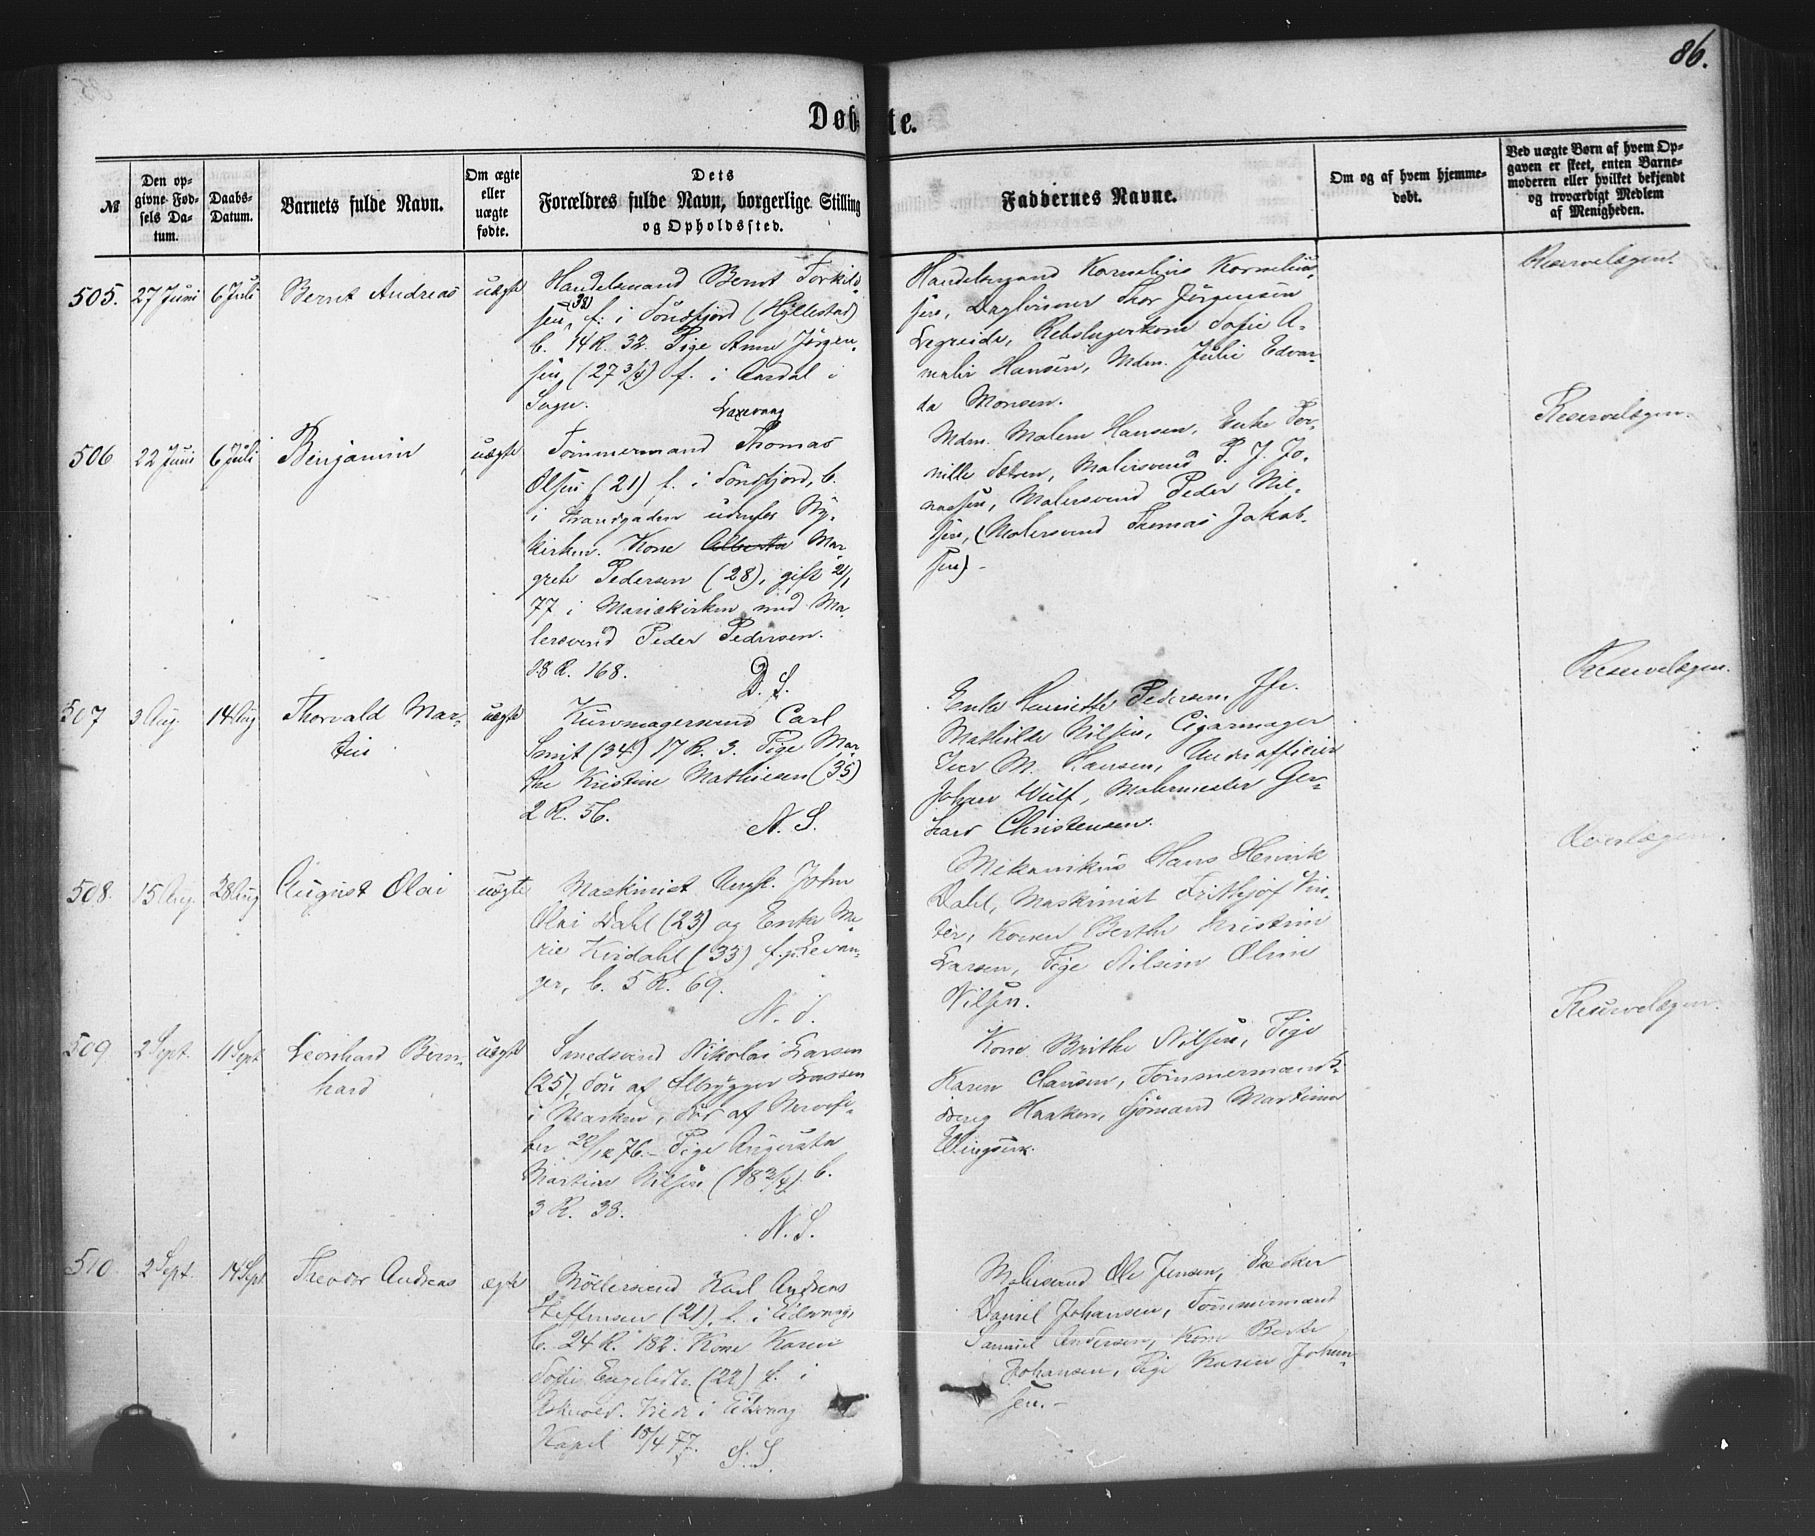 86.
Døbte.
№
Den opgivne Fødsels Datum.
Daabs-Datum.
Barnets fulde Navn.
Om ægte eller uægte fødte.
Dets Forældres fulde Navn, borgerlige Stilling og Opholdssted.
Faddernes Navne.
Om og af hvem hjemmedøbt.
Ved uægte Børn af hvem Opgaven er skeet, enten Barnemoderen eller hvilket bekjendt og troværdigt Medlem af Menigheden.
505. 27 Juni 6 Juli Bernt Andreas uægte
Handelsmand Bernt Torkild-
sen (38) f. i Söndfjord (Hyllestad)
b. 14 R. 32. Pige Anne Jörgen-
sen, (27 3/4) f. i Aardal i
Sogn.
Handelsmand Kornelius Kornelius-
sen, Daglönner Thor Jörgensen
Degreide, Rebslagerkone Sofie A-
malie Hansen, Mdm. Julie Edvar-
da Monsen.
Reservelægen.
506 22 Juni 6 Juli Benjamin uægte
Laxevaag
Tømmermand Thomas
Olsen (21) f. i Söndfjord, b.
i Strandgaden udenfor Ny-
kirken. Kone Alberta Mar-
grete Pedersen (28), gift 21/1
77 i Mariækirken med Ma-
lersvend Peder Pedersen.
18 R. 168.
D. S.
Mdm. Malene Hansen, Enke Per-
nille Sætren, Malersvend P. J. Jo-
nassen, Malersvend Peder Nil-
sen, (Malersvend Thomas Jakob-
sen) -
Reservelægen.
507 3 Aug. 14 Aug Thorvald Mar-
tin
uægte
Kurvmagersvend Carl
Smit (34) 17 R. 3. Pige Mar-
the Kristine Mathiesen (35)
2 R. 56.
N. S.
Enke Henriette Pedersen, Jfr.
Mathilde Nilsen, Cigarmager
Iver M. Hansen, Underofficier
Johan Wulf, Malermester Ger-
hard Christensen.
Reservelægen.
508. 15 Aug. 28 Aug August Olai uægte
Maskinist Ungk. John
Olai Dahl (23) og Enke Ma-
rie Kirdahl (33) f. p. Levan-
ger, b. 5 R. 69.
N. S.
Mekanikus Hans Henrik
Dahl, Maskinist Frithjof Vin-
ter, Konen Berthe Kristine
Larsen, Pige Nilsine Oline
Nilsen.
Overlægen.
509. 2 Sept. 11 Sept Leonhard Bern-
hard
uægte
Smedsvend Nikolai Larsen
(25), Sön af Ølbrygger Larsen
i Marken, död af Nervefe-
ber 20/12 76. - Pige Augusta
Martine Nilsen (18 3/4) b.
3 R. 38.
N. S.
Kone Brithe Nilsen, Pige
Karen Hansen, Tømmermand
Haaken, Sjömand Martinus
Reservelægen.
510. 2 Sept. 14 Sept Theodor Andreas ægte
Möllersvend Karl Andreas
Steffensen (21), f. i Eidsvaag,
b. 24 R. 182. Kone Karen
Sofie Engelsdtr. (22) f. i
Askvold. Viede i Eidsvaag
Kapel 15/4 77. S. S.
Malersvend Ole Jensen, Snedker
Daniel Johansen, Tømmermand
Samuel Andersen, Kone Berte
Johansen, Pige Karen Johan-
sen. -